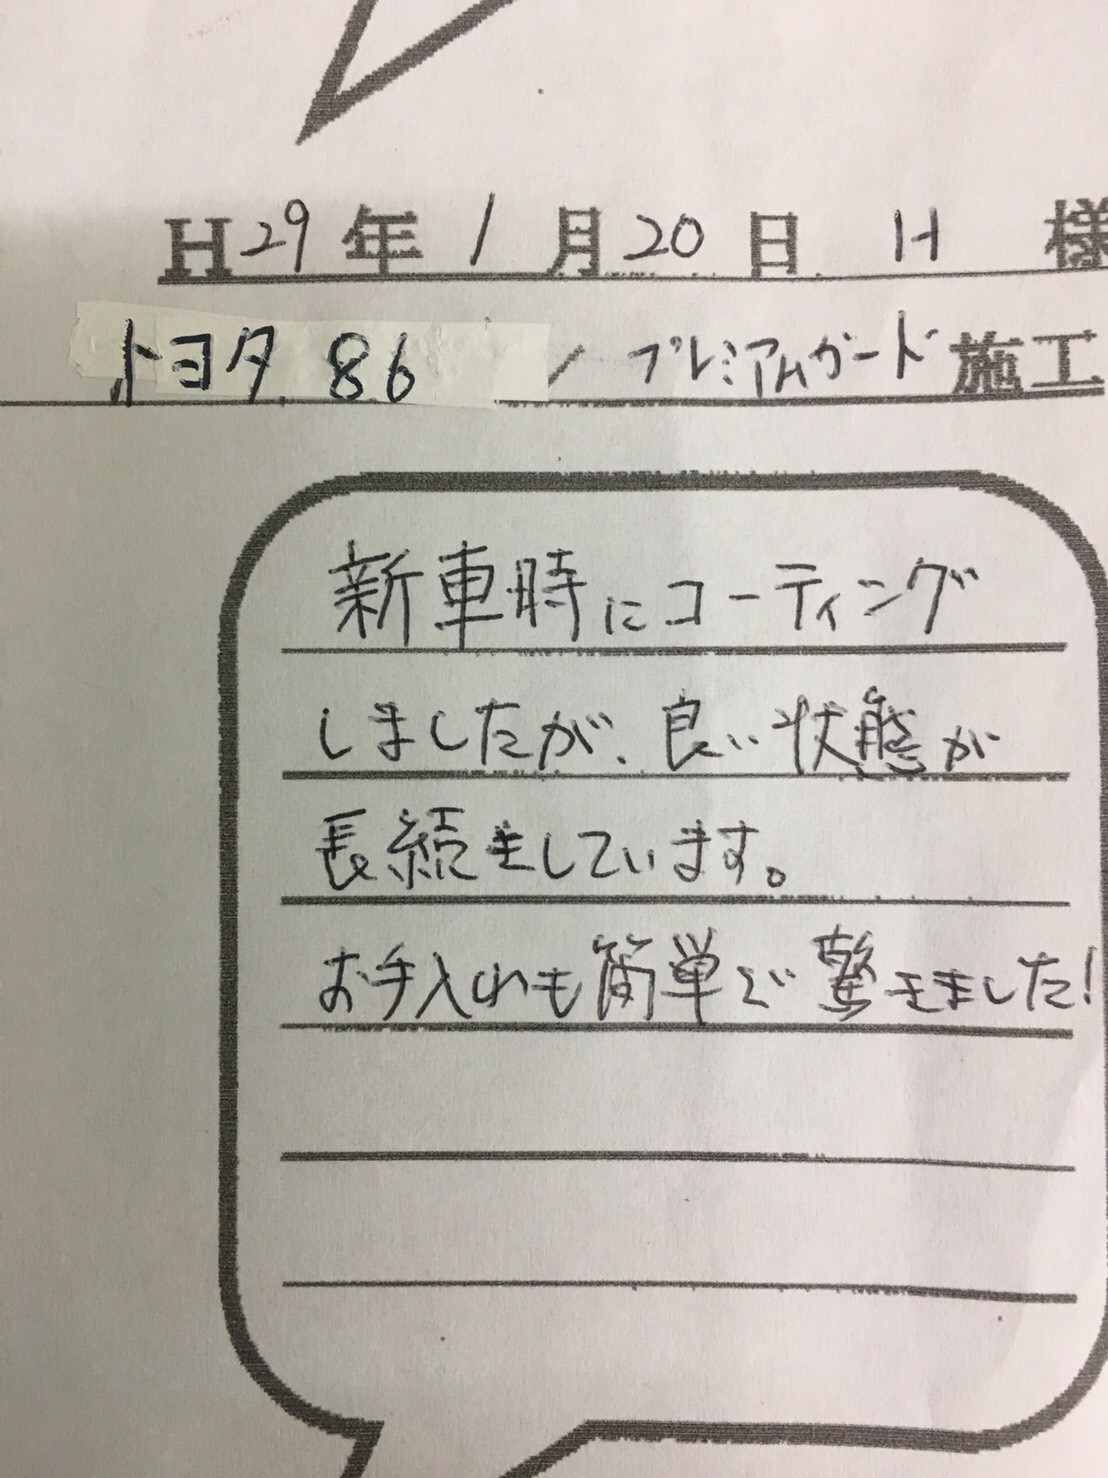 H29年1月20日 H 様
トヨタ 86 / プレミアムガード施工
新車時にコーティング
しましたが、良い状態が
長続きしています。
お手入れも簡単で驚きました!